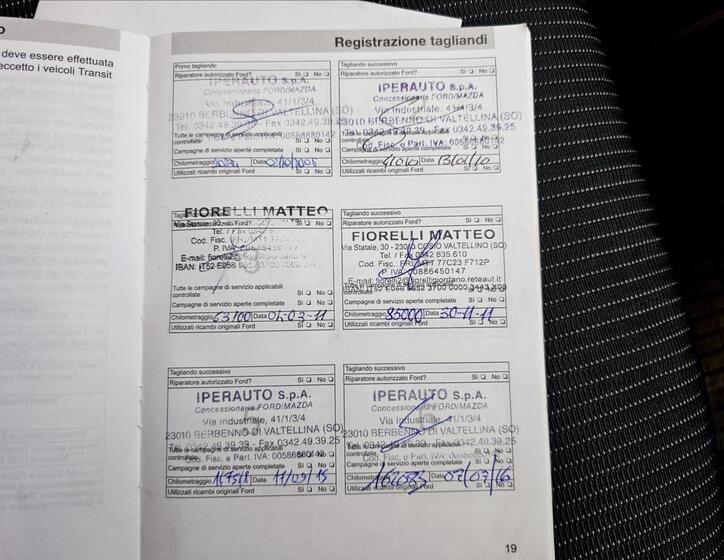 deve essere effettuata
eccetto i veicoli Transit
Registrazione tagliandi
Primo tagliando
Riparatore autorizzato Ford? Sì No
IPERAUTO S.p.A.
Concessionaria FORD/MAZDA
Via Industriale, 41/1/3/4
23010 BERBENNO DI VALTELLINA (SO)
Tel. 0342.49.39.39 - Fax 0342.49.39.25
Tutte le campagne di servizio applicabili
controllate Sì No
Campagne di servizio aperte completate Sì No
Chilometraggio Data
Utilizzati ricambi originali Ford Sì No
Tagliando successivo
Riparatore autorizzato Ford? Sì No
IPERAUTO S.p.A.
Concessionaria FORD/MAZDA
Via Industriale, 41/1/3/4
23010 BERBENNO DI VALTELLINA (SO)
Tel. 0342.49.39.39 - Fax 0342.49.39.25
Tutte le campagne di servizio applicabili
controllate
Cod. Fisc. e Part. IVA: 00586880142
Campagne di servizio aperte completate Sì No
Chilometraggio Data 13/01/10
Utilizzati ricambi originali Ford Sì No
FIORELLI MATTEO
Via Statale, 30
Tel. / Fax
Cod. Fisc.
P. IVA
E-mail:
IBAN: IT52
Tutte le campagne di servizio applicabili
controllate Sì No
Campagne di servizio aperte completate Sì No
Chilometraggio 63100 Data 04-03-11
Utilizzati ricambi originali Ford Sì No
Tagliando successivo
FIORELLI MATTEO
Via Statale, 30 - 23013 COSIO VALTELLINO (SO)
Tel. / Fax 0342 635.610
Cod. Fisc. 77C23 F712P
P. IVA 00886450147
E-mail: fiorelli2@fiorelligiordano.reteaut.it
Tutte le campagne di servizio applicabili
controllate Sì No
Campagne di servizio aperte completate Sì No
Chilometraggio 85000 Data 30-11-11
Utilizzati ricambi originali Ford Sì No
Tagliando successivo
Riparatore autorizzato Ford? Sì No
IPERAUTO S.p.A.
Concessionaria FORD/MAZDA
Via Industriale, 41/1/3/4
23010 BERBENNO DI VALTELLINA (SO)
Tel. 0342.49.39.39 - Fax 0342.49.39.25
Tutte le campagne di servizio applicabili
controllate Sì No
Cod. Fisc. e Part. IVA: 00586880142
Campagne di servizio aperte completate Sì No
Chilometraggio Data 11/09/15
Utilizzati ricambi originali Ford Sì No
Tagliando successivo
Riparatore autorizzato Ford? Sì No
IPERAUTO S.p.A.
Concessionaria FORD/MAZDA
Via Industriale, 41/1/3/4
23010 BERBENNO DI VALTELLINA (SO)
Tel. 0342.49.39.39 - Fax 0342.49.39.25
Tutte le campagne di servizio applicabili
controllate Sì No
Campagne di servizio aperte completate Sì No
Chilometraggio Data 07/07/16
Utilizzati ricambi originali Ford Sì No
19